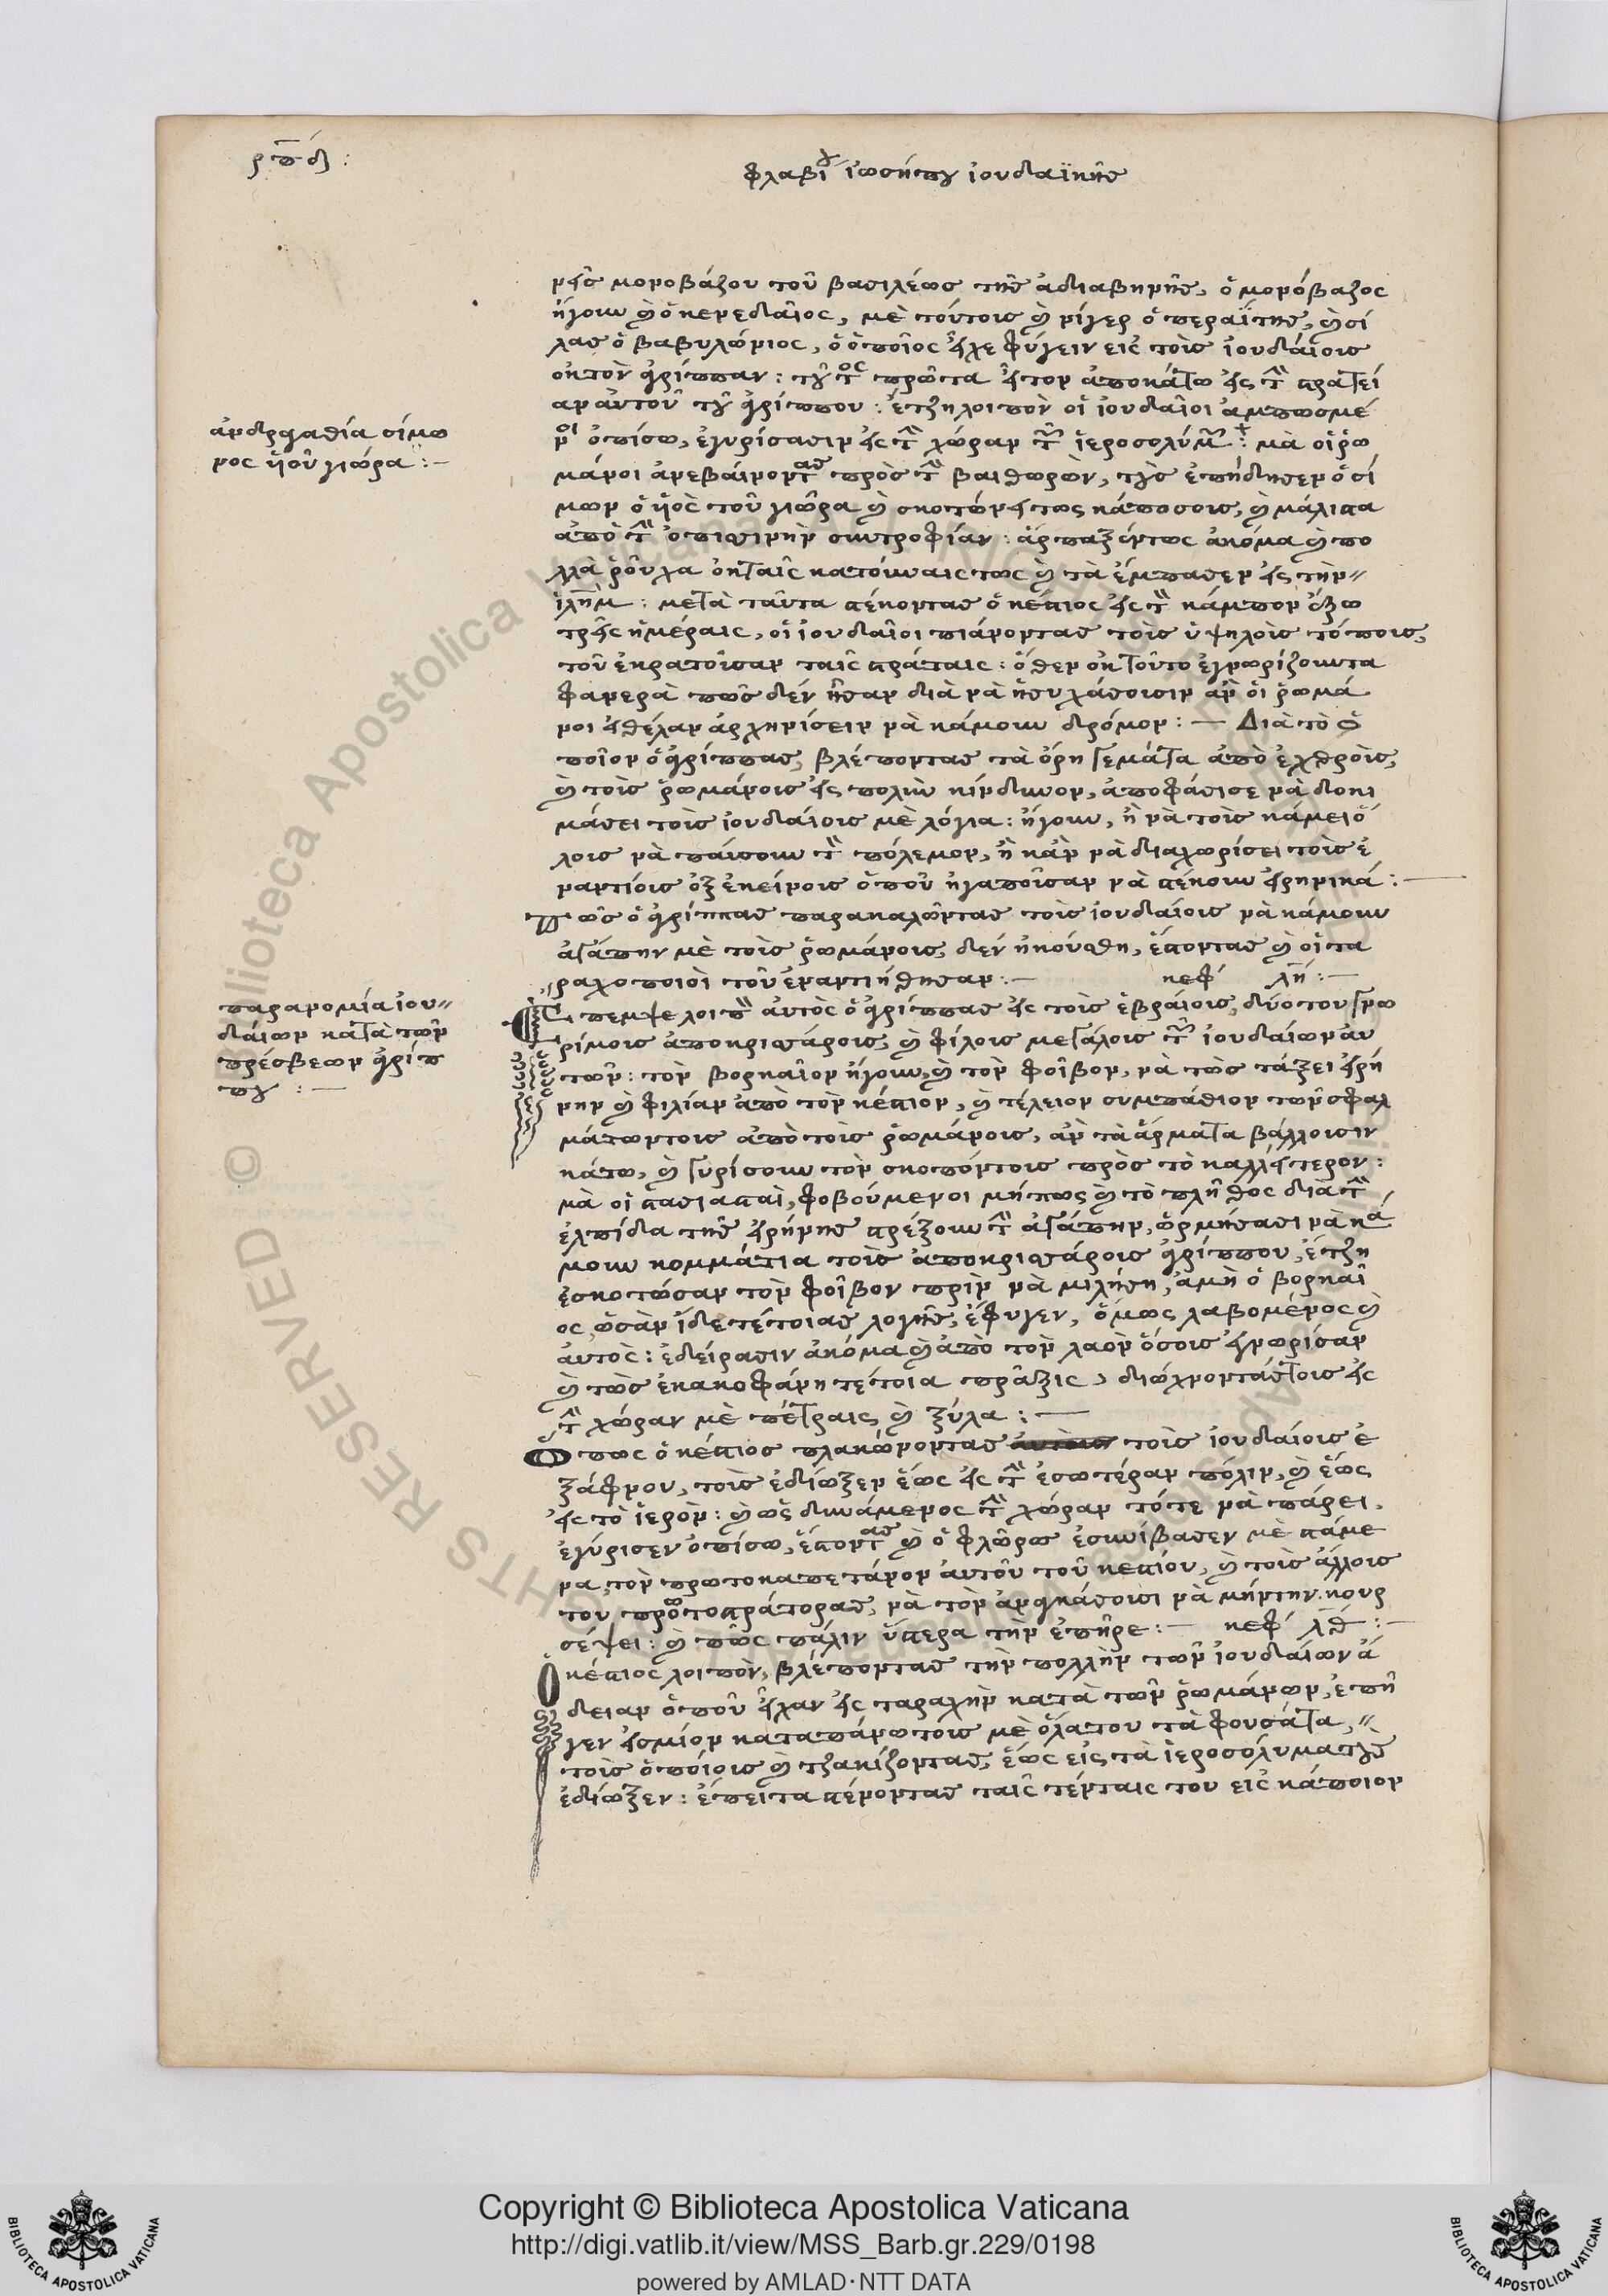 ρπδ :
φλαβίου ἰωσήπου ἰουδαϊκῆς
νεῖς μονοβάζου τοῦ βασιλέως τῆς ἀδιαβηνῆς, ὁ μονόβαζος
ἤγουν καὶ ὁ κενεδαῖος, μὲ τούτοις καὶ νίγερ ὁ περαΐτης, καὶ σί
λας ὁ βαβυλώνιος, ὁ ὁποῖος εἶχε φύγειν εἰς τοὺς ἰουδαίους
ἐκ τὸν ἀγρίππαν : πρῶτα ἦτον ἀποκάτω εἰς τὴν στρατεί
αν αὐτοῦ τοῦ ἀγρίππου : ἔτζη λοιπὸν οἱ ἰουδαῖοι ἀμπωσμέ
νοι ὀπίσω, ἐγυρίσασιν εἰς τὴν χώραν τῶν ἱεροσολύμων : μὰ οἱ ῥω
μάνοι ἀνεβαίνοντας πρὸς τὴν βαιθωρὼν, τοὺς ἐπήδησεν ὁ σί
μων ὁ υἱὸς τοῦ γιώρα καὶ σκοτώνει τως κάποσους, καὶ μάλιστα
ἀπὸ τὴν ὀπισινὴν συντροφίαν : ἁρπαξέν τως ἀκόμα καὶ πο
λλὰ ῥοῦχα ἐκ ταῖς κατούναις τως καὶ τὰ ἔμπασεν εἰς τὴν
ἱλημ : μετὰ ταῦτα στέκοντας ὁ κέστιος εἰς τὸν κάμπον ἔξω
τρεῖς ἡμέραις, οἱ ἰουδαῖοι πιάνοντας τοὺς ὑψηλοὺς τόπους,
τοῦ ἐκρατοῦσαν ταῖς στράταις : ὅθεν ἐκ τοῦτο ἐγνωρίζουντα
φανερὰ πῶς δὲν ἦσαν διὰ νὰ ἡσυχάσουσιν ἂν οἱ ῥωμά
νοι ἐθέλαν ἀρχηνίσειν νὰ κάμουν δρόμον : — Διὰ τὸ ὁ
ποῖον ὁ ἀγρίππας, βλέποντας τὰ ὄρη γεμάτα ἀπὸ ἐχθροὺς,
καὶ τοὺς ῥωμάνους εἰς πολὺν κίνδυνον, ἀποφάσισε νὰ δοκι
μάσει τοὺς ἰουδαίους μὲ λόγια : ἤγουν, ἢ νὰ τοὺς κάμει ὅ
λους νὰ παύσουν τὸν πόλεμον, ἢ κἂν νὰ διαχωρίσει τοὺς ἐ
ναντίους ἐξ ἐκείνους ὁποῦ ἠγαποῦσαν νὰ στέκουν εἰρηνικά : —
Πῶς ὁ ἀγρίππας παρακαλῶντας τοὺς ἰουδαίους νὰ κάμουν
ἀγάπην μὲ τοὺς ῥωμάνους, δὲν ἠκούσθη, ἔστοντας καὶ οἱ τα
ραχοποιοὶ τοῦ ἐναντιήθησαν : — κεφ λη : —
Ἔπεμψε λοιπὸν αὐτὸς ὁ ἀγρίππας εἰς τοὺς ἑβραίους, δύο του γνω
ρίμους ἀποκρισάρους, καὶ φίλους μεγάλους τῶν ἰουδαίων αὐ
τῶν : τὸν βορκαῖον ἤγουν, καὶ τὸν φοῖβον, νὰ τῶς τάξει εἰρή
νην καὶ φιλίαν ἀπὸ τὸν κέστιον, καὶ τέλειον συμπάθιον τῶν σφαλ
μάτων τους ἀπὸ τοὺς ῥωμάνους, ἂν τὰ ἄρματα βάλλουσιν
κάτω, καὶ γυρίσουν τὸν σκοπόν τους πρὸς τὸ καλλίτερον :
μὰ οἱ στασιασταὶ, φοβούμενοι μήπως καὶ τὸ πλῆθος διὰ τὴν
ἐλπίδα τῆς εἰρήνης στρέξουν τὴν ἀγάπην, ὡρμήσασι νὰ κά
μουν κομμάτια τοὺς ἀποκρισάρους ἀγρίππου, ἔτζη
ἐσκοτώσαν τὸν φοῖβον πρὶν νὰ μιλήση, ἀμὴ ὁ βορκαῖ
ος, ὡσὰν ἴδε τέτοιας λογῆς, ἔφυγεν, ὅμως λαβομένος καὶ
αὐτὸς : ἐδείρασιν ἀκόμα καὶ ἀπὸ τὸν λαὸν ὅσους ἐγνωρίσαν
καὶ τῶς ἐκακοφάνη τέτοια πρᾶξις, διώχνοντάς τους εἰς
τὴν χώραν μὲ πέτραις καὶ ξύλα : —
Ὅπως ὁ κέστιος πλακώνοντας τοὺς ἰουδαίους ἐ
ξάφνου, τοὺς ἐδίωξεν ἕως εἰς τὴν ἐσωτέραν πόλιν, καὶ ἕως
εἰς τὸ ἱερὸν : καὶ ὡς δυνάμενος τὴν χώραν τότε νὰ πάρει,
ἐγύρισεν ὀπίσω, ἔστοντας καὶ ὁ φλῶρω ἐσυνίβασεν μὲ στάμε
να, τὸν πρωτοκαπετάνον αὐτοῦ τοῦ κεστίου, καὶ τοὺς ἄλλους
του πρωτοστράτορας, νὰ τὸν ἀναγκάσουσι νὰ μήν την κουρ
σέψει : καὶ πῶς πάλιν ὕστερα τὴν ἐπῆρε : — κεφ λθ : —
Ὁ κέστιος λοιπὸν, βλέποντας τὴν πολλὴν τῶν ἰουδαίων ἄ
δειαν ὁποῦ εἶχαν εἰς ταραχὴν κατὰ τῶν ῥωμάνων, ἐπῆ
γεν ἐσμίον καταπάνω τους μὲ ὅλα του τὰ φουσάτα,
τοὺς ὁποίους καὶ τζακίζοντας, ἕως εἰς τὰ ἱεροσόλυμα τοὺς
ἐδίωξεν : ἔπειτα στένοντας ταῖς τένταις του εἰς κάποιον
ἀνδραγαθία σίμω
νος υἱοῦ γιώρα : —
παρανομία ἰου
δαίων κατὰ τῶν
πρέσβεων ἀγρίπ
που : —
Copyright © Biblioteca Apostolica Vaticana
http://digi.vatlib.it/view/MSS_Barb.gr.229/0198
powered by AMLAD·NTT DATA
BIBLIOTECA APOSTOLICA VATICANA
BIBLIOTECA APOSTOLICA VATICANA